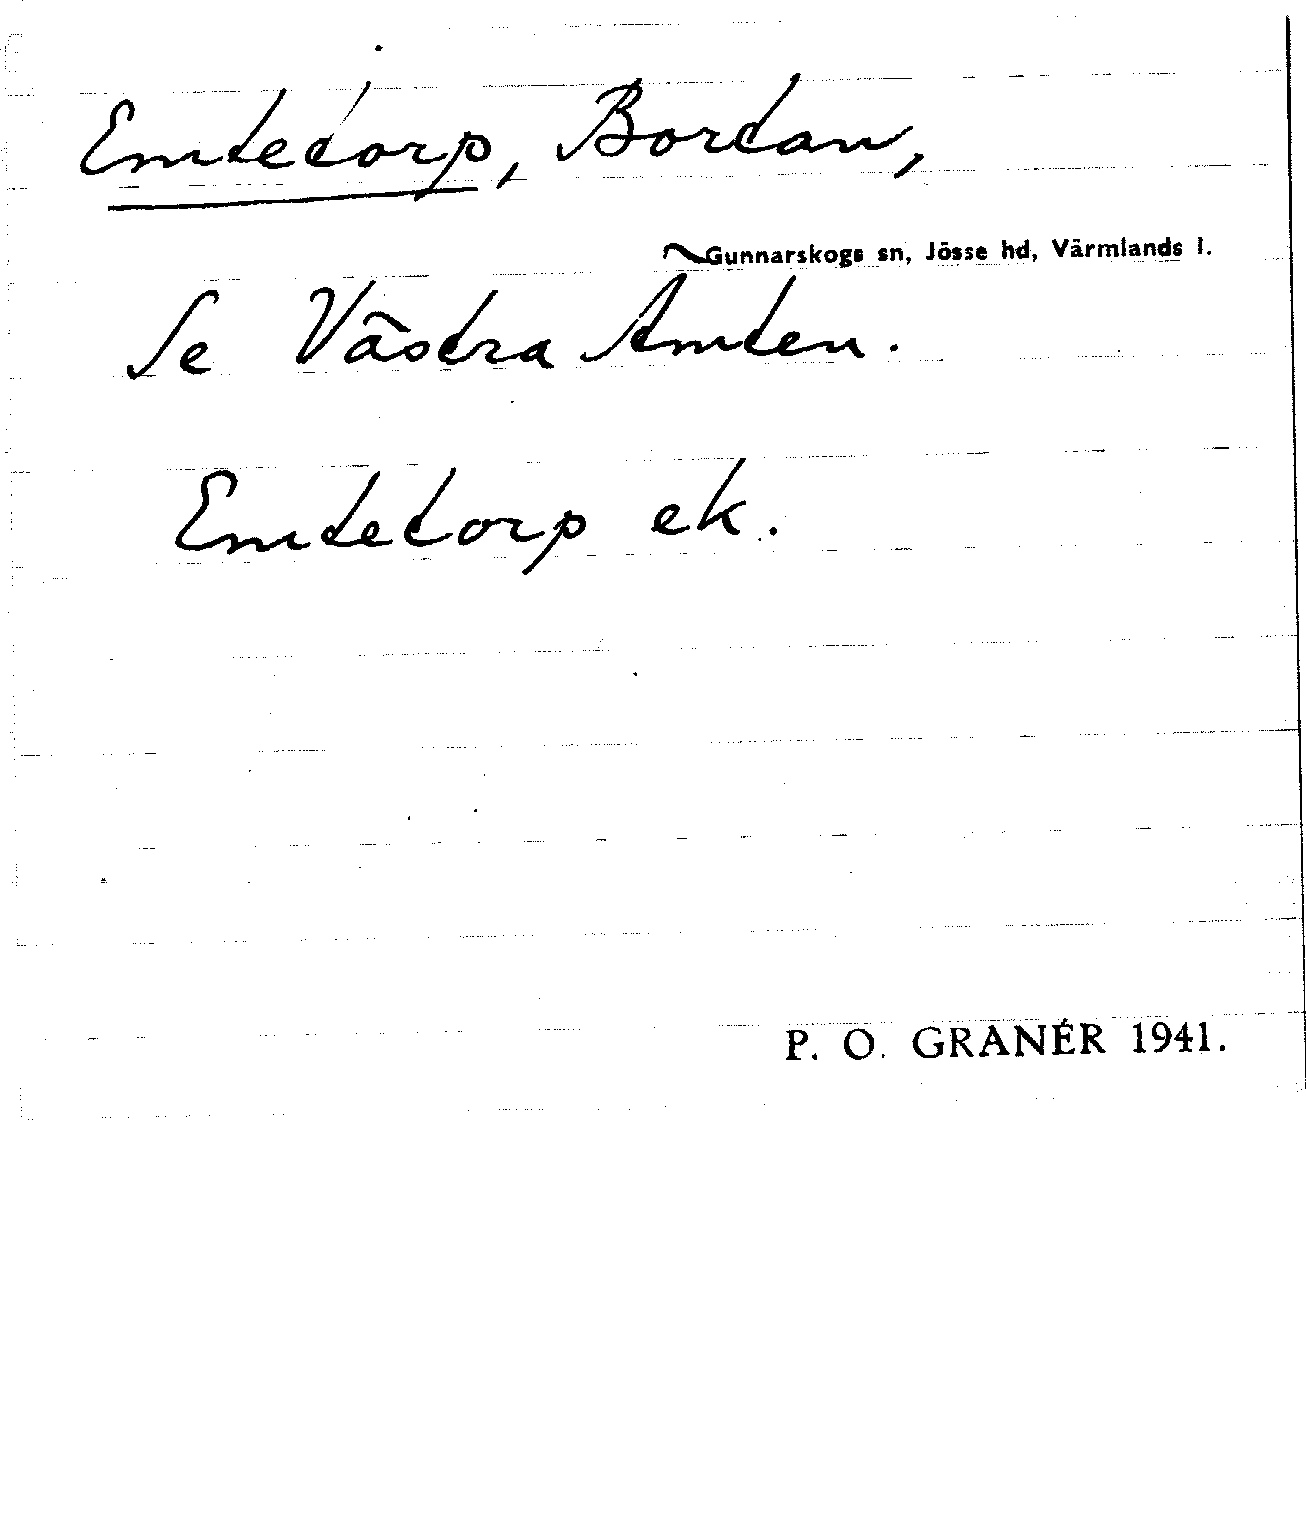 Emtetorp, Bortan,
Gunnarskogs sn, Jösse hd, Värmlands l.
Se Västra Amten.
Emtetorp ek.
P. O. GRANÉR 1941.